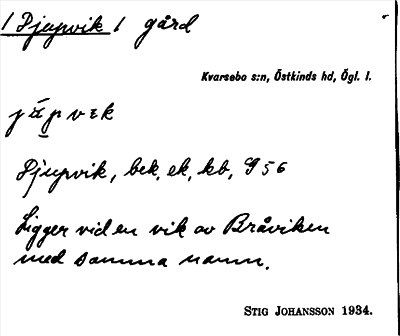 / Djupvik / gård
Kvarsebo s:n, Östkinds hd, Ögl. l.
Djupvik, bek, ek, kb, G 56
Ligger vid en vik av Bråviken
med samma namn.
STIG JOHANSSON 1934.